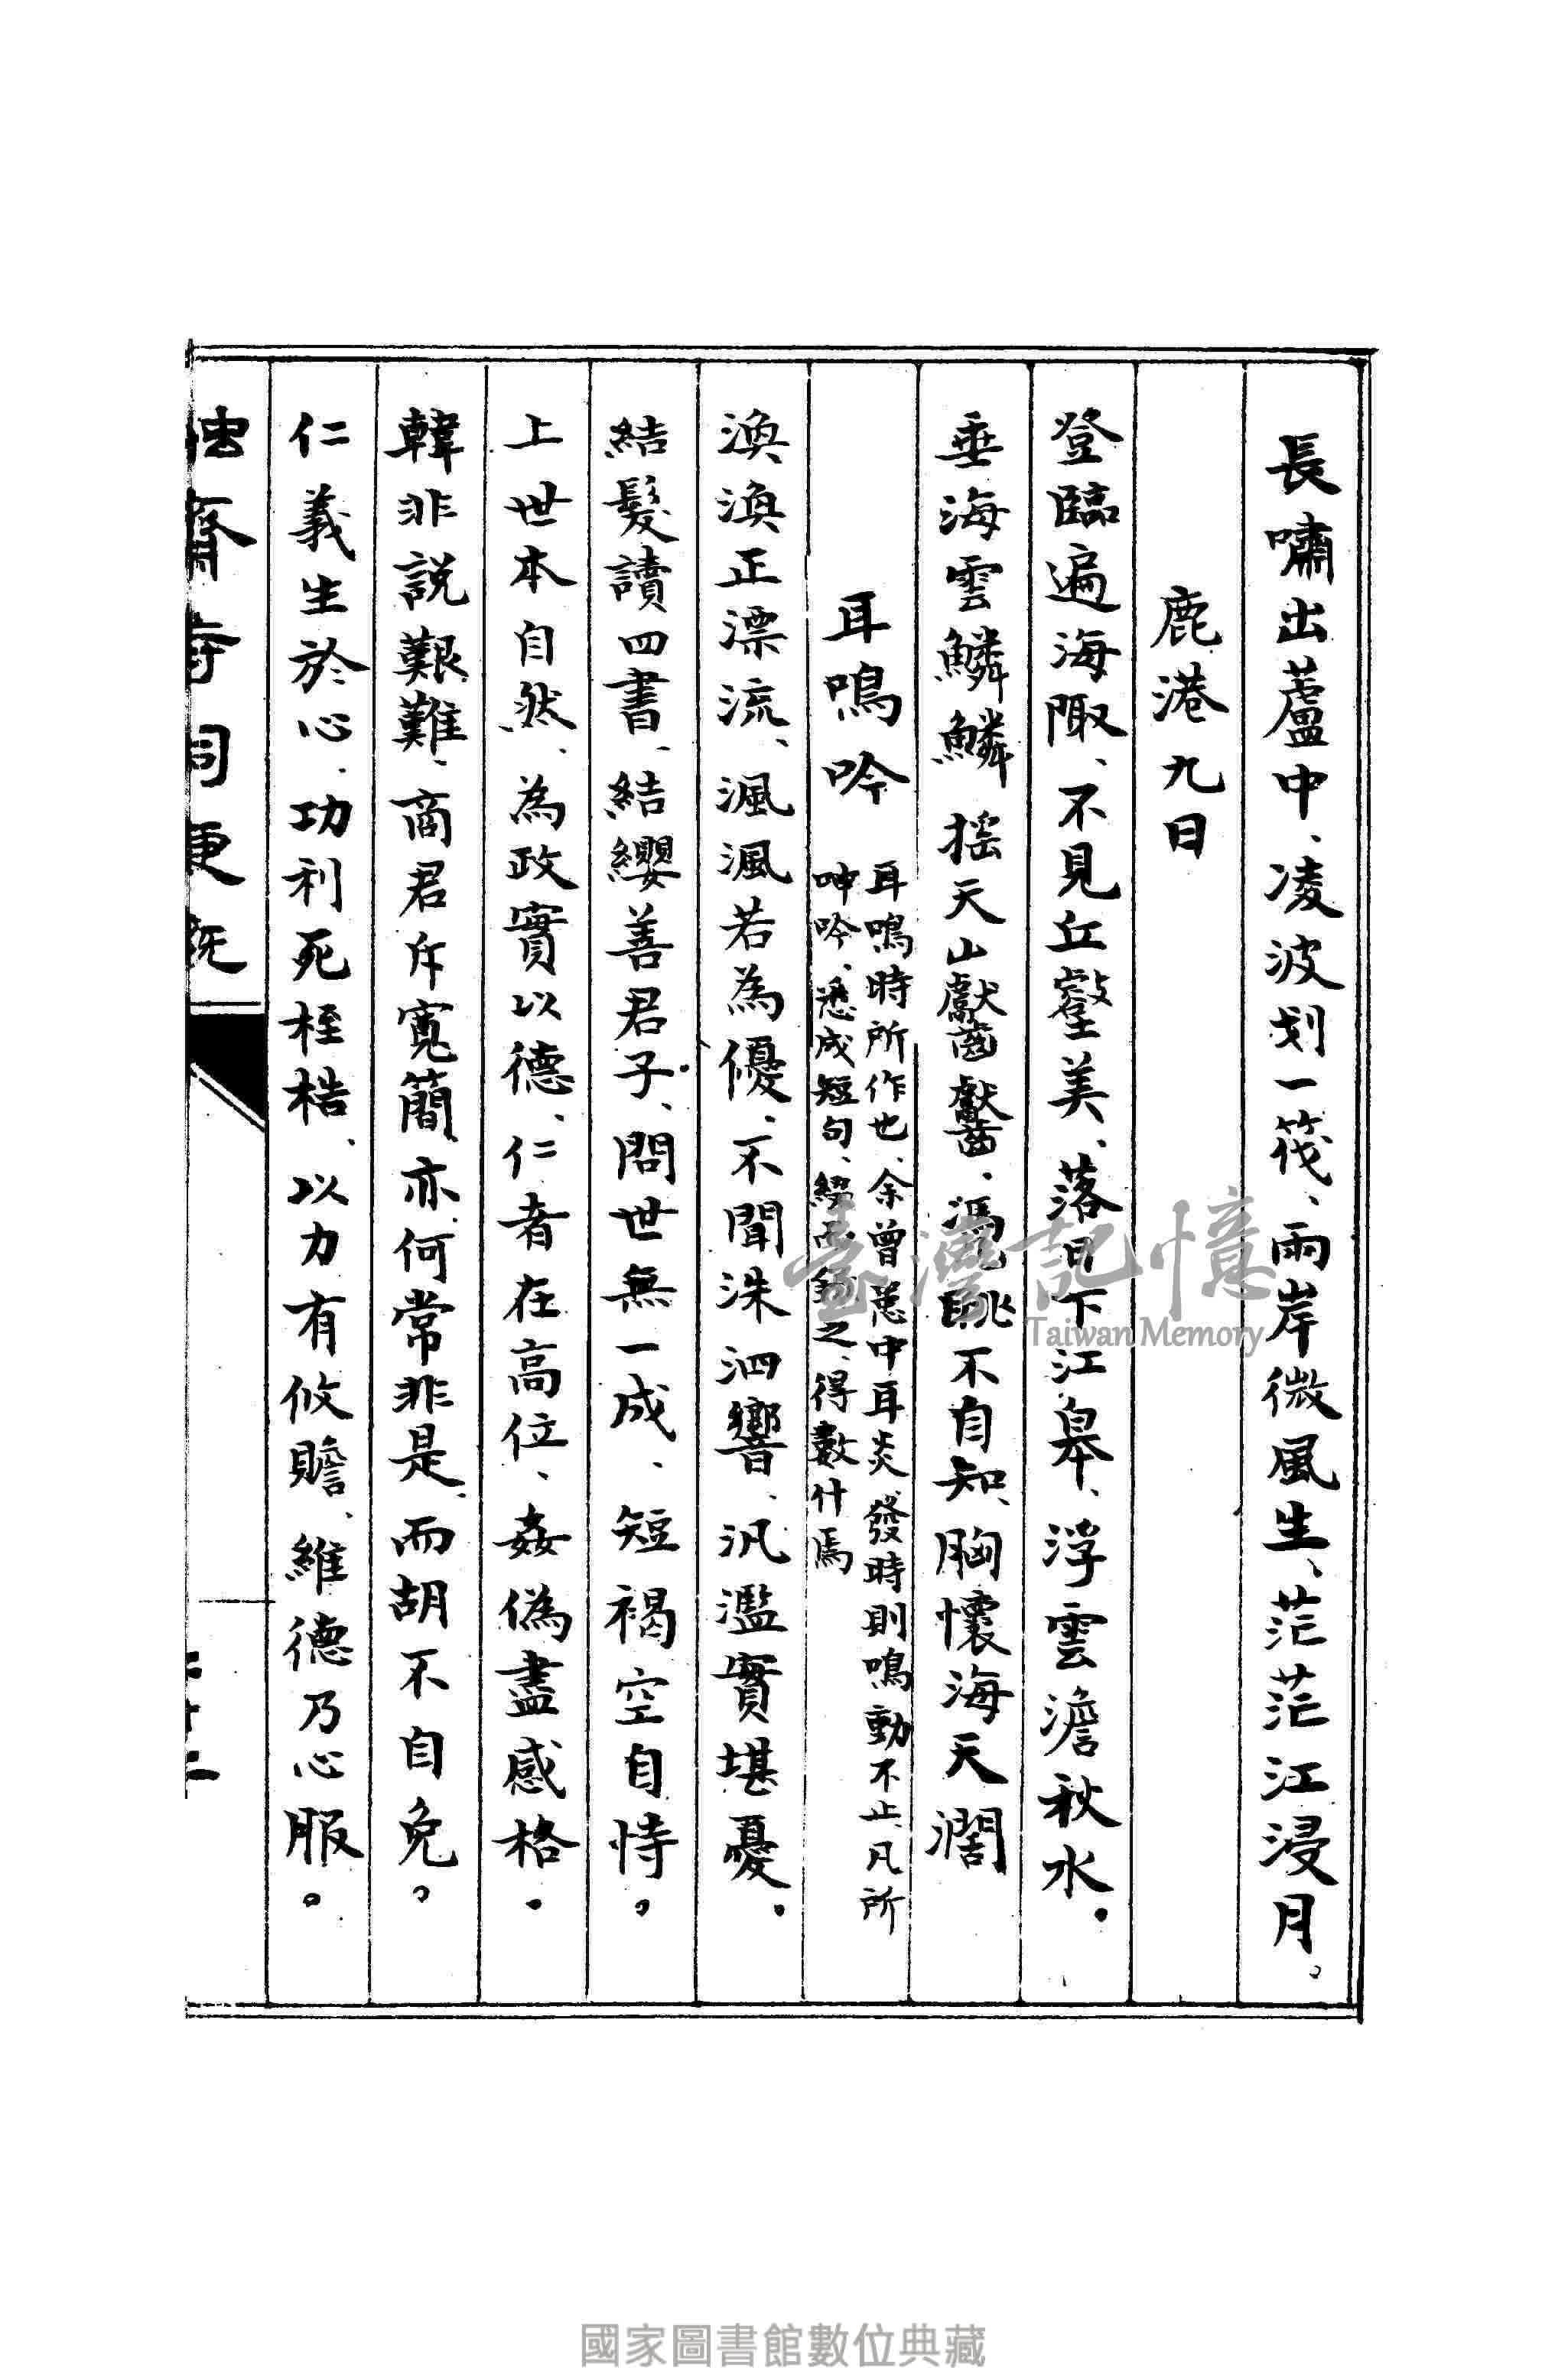 長嘯出蘆中、凌波划一筏、兩岸微風生、茫茫江浸月。
鹿港九日
登臨遍海陬、不見丘壑美、落日下江皋、浮雲澹秋水。
垂海雲鱗鱗搖天山巘巘、馮眺不自知、胸懷海天濶
耳鳴吟
耳鳴時所作也、余曾患中耳炎、發時則鳴動不止、凡所
呻吟、悉成短句、綴而錄之、得數什焉
渙渙正漂流、渢渢若為優、不聞洙泗響、汎濫實堪憂。
結髮讀四書、結纓善君子、問世無一成、短褐空自恃。
上世本自然、為政實以德、仁者在高位、姦偽盡感格。
韓非說艱難、商君斥寬簡、亦何常非是、而胡不自免。
仁義生於心、功利死桎梏、以力有攸贍、維德乃心服。
臺灣記憶
Taiwan Memory
國家圖書館數位典藏